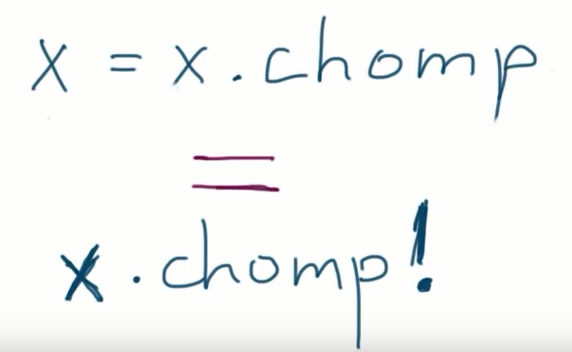 x = x.chomp
=
x.chomp!